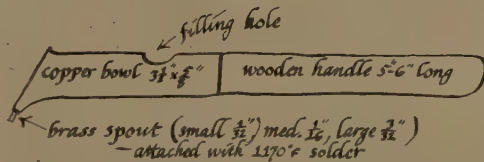 filling hole
copper bowl
wooden handle 5"-6" long
brass spout (small 1/32") med. 1/16, large 3/32")
— attached with 1170°F solder